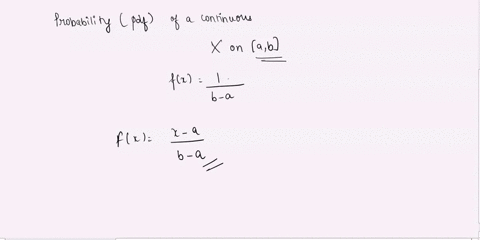 Probability (pdf) of a continuous
X on [a,b]
f(x) = 1
b-a
F(x) = x-a
b-a